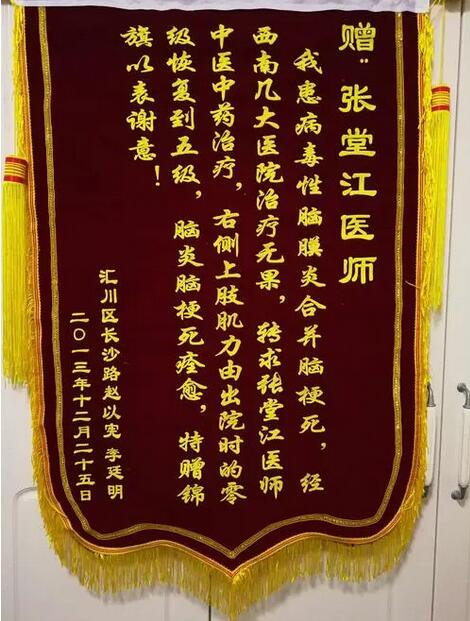 赠：张堂江医师
我患病毒性脑膜炎合并脑梗死，经
西南几大医院治疗无果，转求张堂江医师
中医中药治疗，右侧上肢肌力由出院时的零
级恢复到五级，脑炎脑梗死痊愈，特赠锦
旗以表谢意！
汇川区长沙路赵以宪 李廷明
二〇一三年十二月二十五日